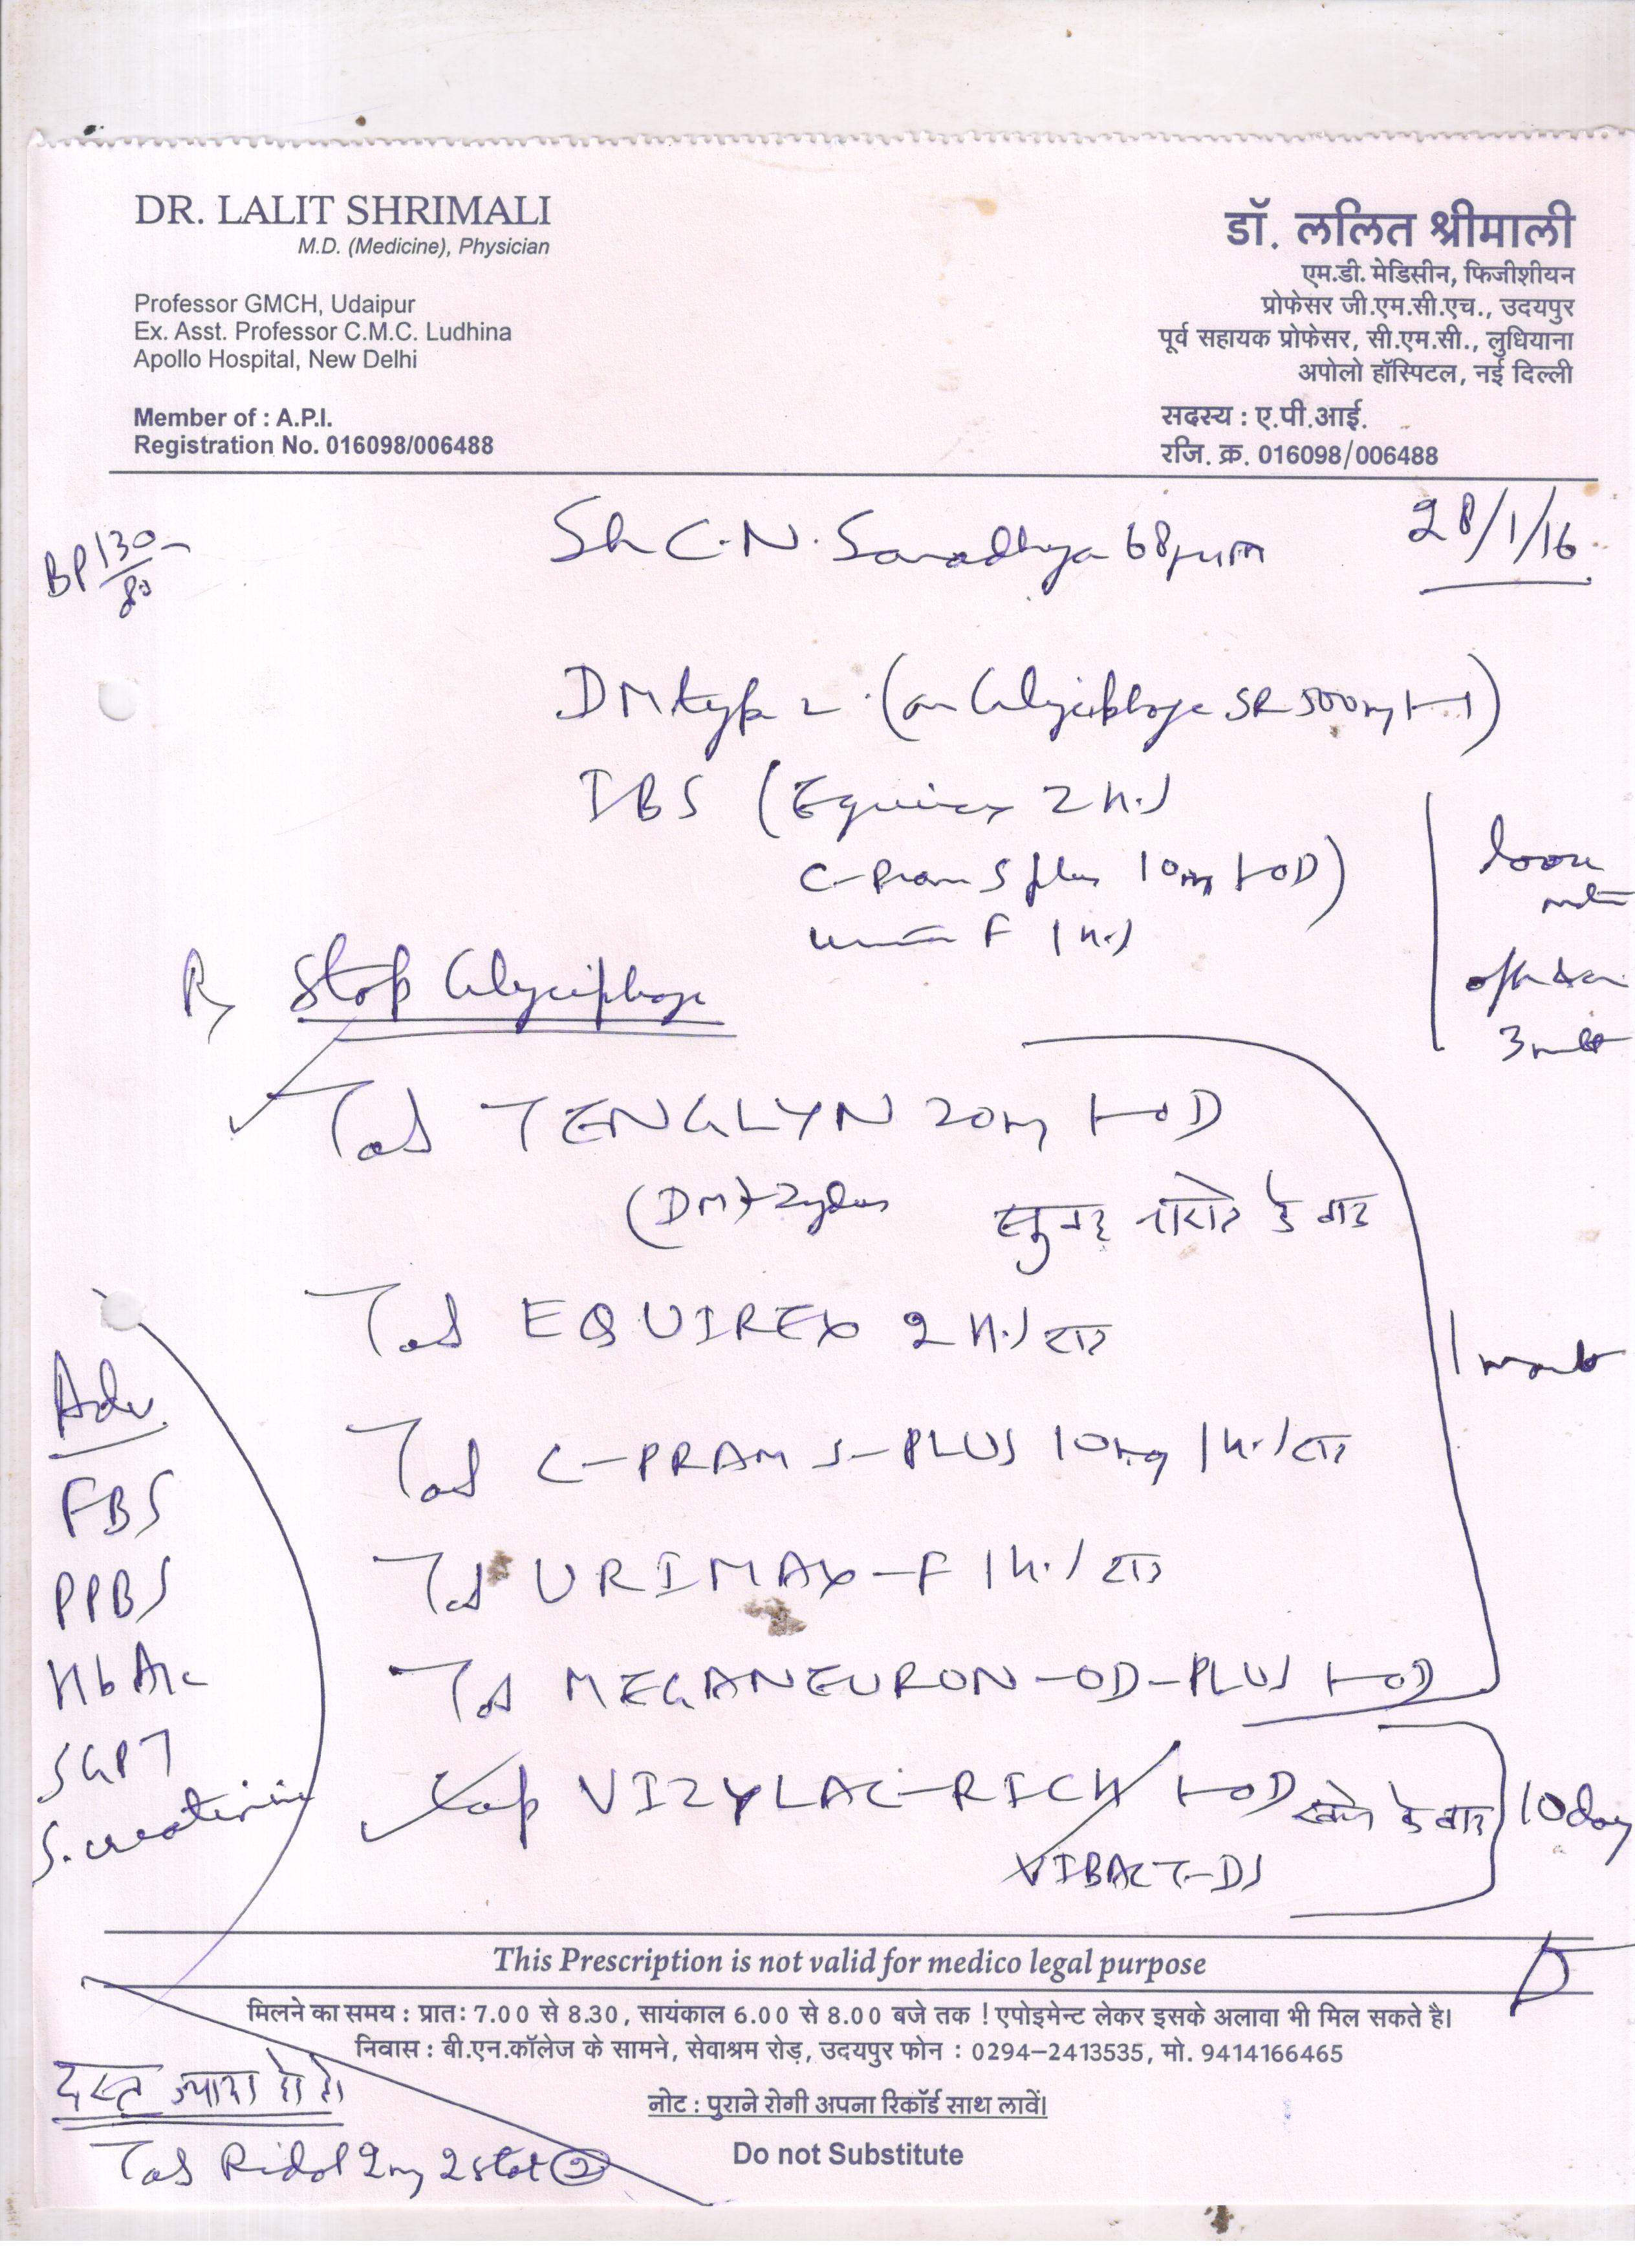 DR. LALIT SHRIMALI
M.D. (Medicine), Physician
Professor GMCH, Udaipur
Ex. Asst. Professor C.M.C. Ludhina
Apollo Hospital, New Delhi
Member of : A.P.I.
Registration No. 016098/006488
डॉ. ललित श्रीमाली
एम.डी. मेडिसीन, फिजीशीयन
प्रोफेसर जी.एम.सी.एच., उदयपुर
पूर्व सहायक प्रोफेसर, सी.एम.सी., लुधियाना
अपोलो हॉस्पिटल, नई दिल्ली
सदस्य : ए.पी.आई.
रजि. क्र. 016098/006488
BP 130/80
Sh C.N. Sanadhya 68
28/1/16
DM type 2 (on Glyciphage SR 500mg 1-1)
IBS (Equirex 2 h.s
C-Pram S plus 10mg 1-OD)
F 1 h.s
loose
often
3
R Stop Glyciphage
Tab TENGLYN 20mg 1-OD
(DM) Zydus
सुबह नाश्ते के बाद
Tab EQUIREX 2 h.s रात
Tab C-PRAM S-PLUS 10mg 1 h.s रात
Tab URIMAX-F 1 h.s रात
Tab MEGANEURON-OD-PLUS 1-OD
1 month
Cap VIZYLAC-RICH 1-OD खाने के बाद
VIBACT-DS
10 day
Adv
FBS
PPBS
HbA1c
SGPT
S. creatinine
This Prescription is not valid for medico legal purpose
मिलने का समय : प्रातः 7.00 से 8.30, सायंकाल 6.00 से 8.00 बजे तक ! एपोइमेन्ट लेकर इसके अलावा भी मिल सकते है।
निवास : बी.एन.कॉलेज के सामने, सेवाश्रम रोड़, उदयपुर फोन : 0294-2413535, मो. 9414166465
नोट : पुराने रोगी अपना रिकॉर्ड साथ लावें।
Do not Substitute
दस्त ज्यादा हो तो
Tab Ridol 2mg 2 stat 2